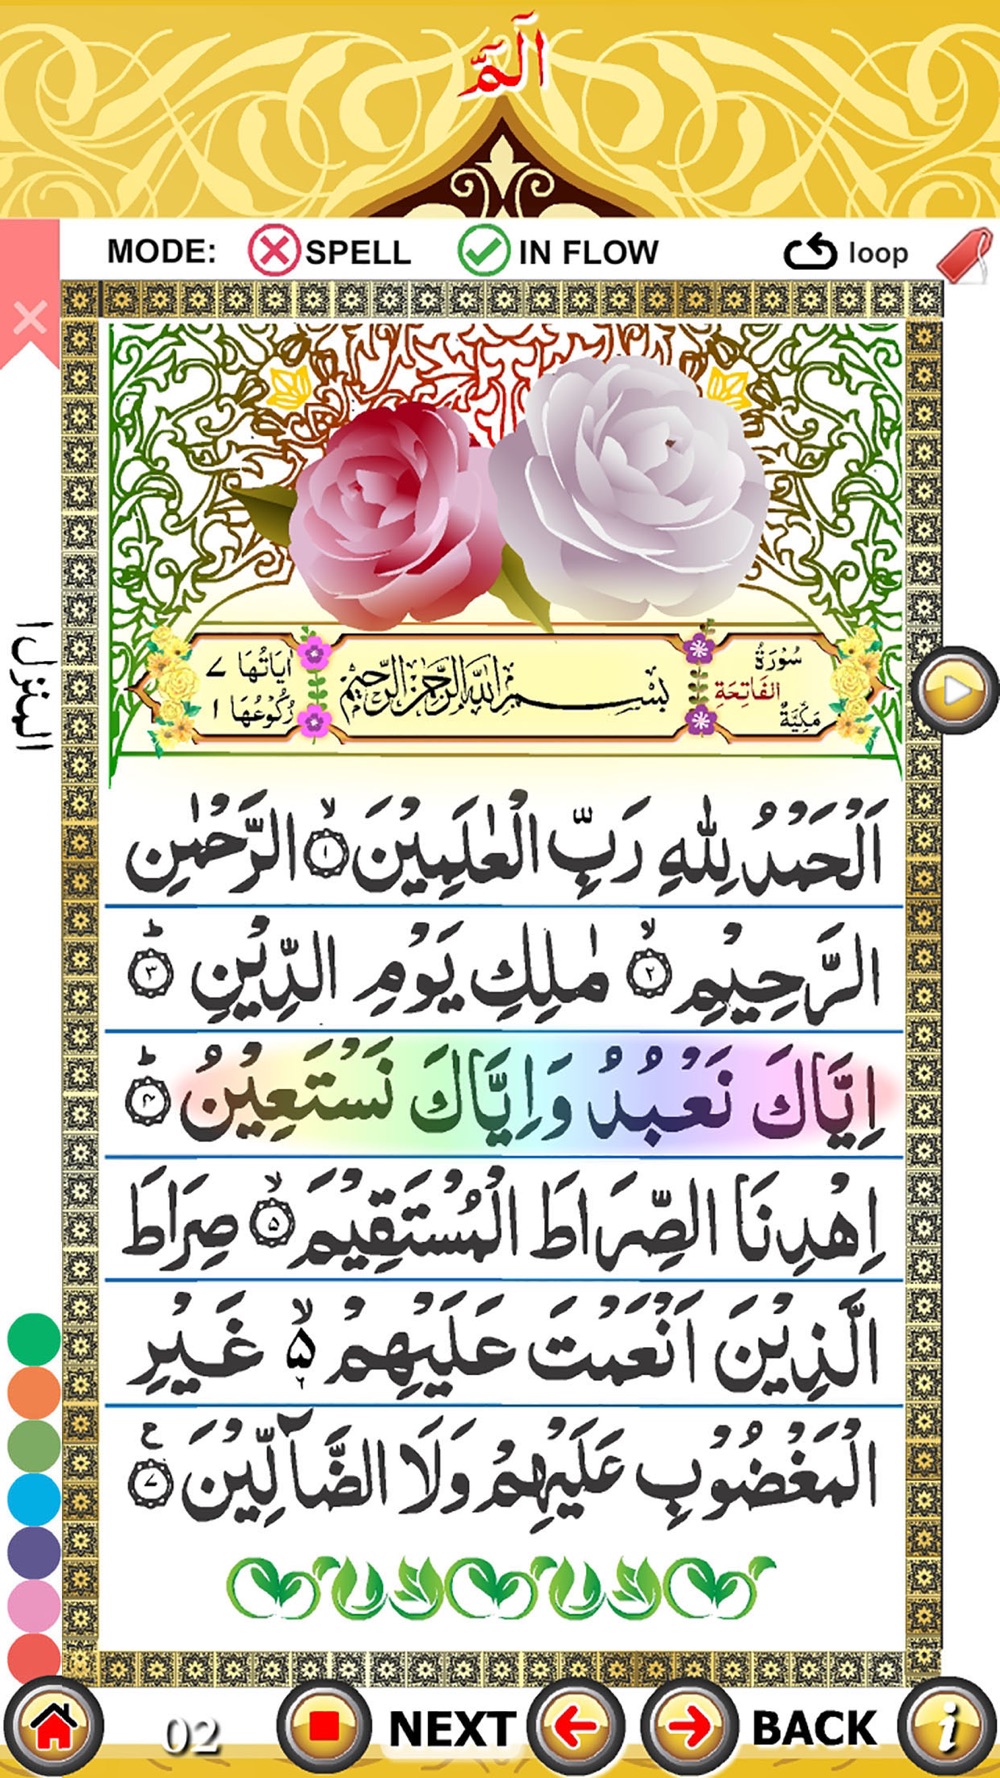 الٓمّٓ
MODE: SPELL IN FLOW loop
سُوْرَةُ الْفَاتِحَة مَكِّيَّةٌ
بِسْمِ اللهِ الرَّحْمٰنِ الرَّحِيْمِ
اٰيَاتُهَا ٧
رُكُوْعُهَا ١
اَلْحَمْدُ لِلّٰهِ رَبِّ الْعٰلَمِيْنَ ۙ﴿۱﴾ الرَّحْمٰنِ
الرَّحِيْمِ ۙ﴿۲﴾ مٰلِكِ يَوْمِ الدِّيْنِ ؕ﴿۳﴾
اِيَّاكَ نَعْبُدُ وَاِيَّاكَ نَسْتَعِيْنُ ؕ﴿۴﴾
اِهْدِنَا الصِّرَاطَ الْمُسْتَقِيْمَ ۙ﴿۵﴾ صِرَاطَ
الَّذِيْنَ اَنْعَمْتَ عَلَيْهِمْ ۙ۵ غَيْرِ
الْمَغْضُوْبِ عَلَيْهِمْ وَلَا الضَّآلِّيْنَ ﴿۷﴾ ع
المنزل ١
02 NEXT BACK i